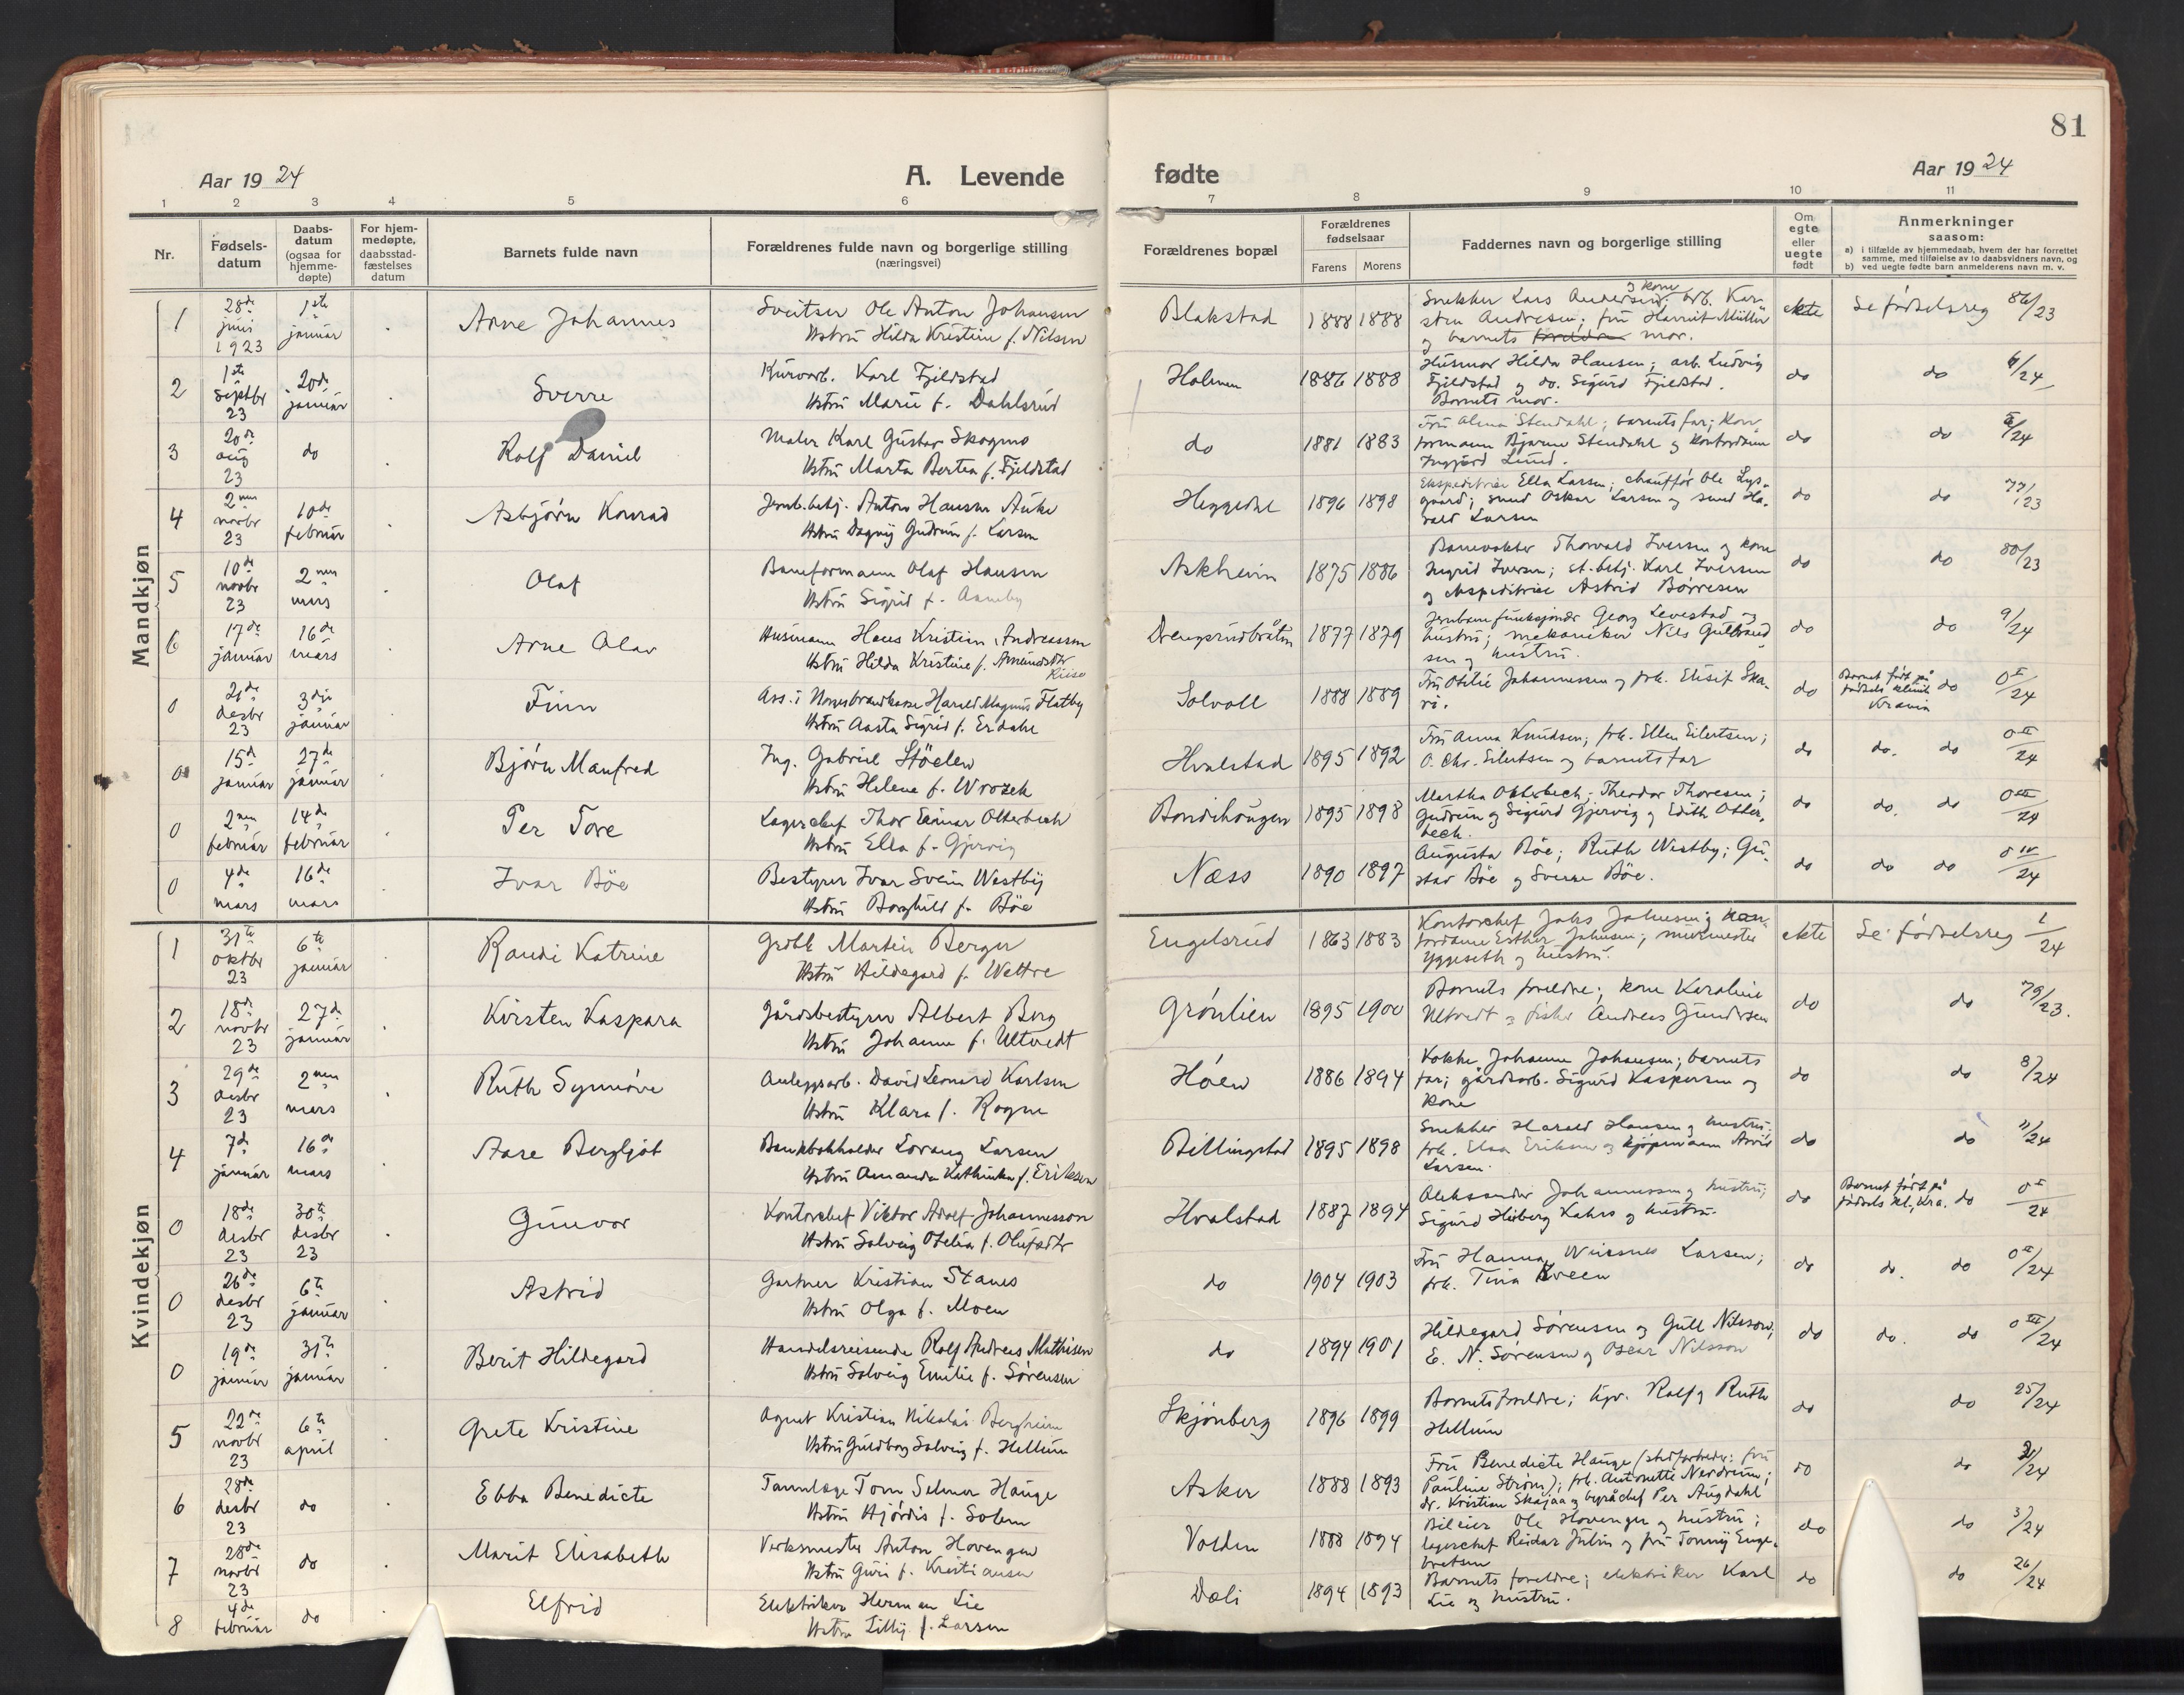 81
Aar 1924
A. Levende
fødte
Aar 1924
1 2 3 4 5 6 7 8 9 10 11
Nr.
Fødsels-
datum
Daabs-
datum
(ogsaa for
hjemme-
døpte)
For hjem-
medøpte,
daabsstad-
fæstelses
datum
Barnets fulde navn
Forældrenes fulde navn og borgerlige stilling
(næringsvei)
Forældrenes bopæl
Forældrenes
fødselsaar
Farens Morens
Faddernes navn og borgerlige stilling
Om
egte
eller
uegte
født
Anmerkninger
saasom:
a) i tilfælde av hjemmedaab, hvem der har forrettet
samme, med tilføielse av to daabsvidners navn, og
b) ved uegte fødte barn anmelderens navn m. v.
Mandkjøn
1 28de juni 1923 1ste januar Arne Johannes
Sveitser Ole Anton Johansen
Hstru Hilda Kristine f. Nilsen
Blakstad 1888 1888
Snekker Lars Andersen og kone; arb. Kar-
sten Andresen; fru Harriet Müller
og barnets foreldre mor.
ekte Se fødselsreg 86/23
2 1ste septbr 23 20de januar Sverre
Kurvarb. Karl Fjeldstad
Hstru Marie f. Dahlsrud
Holmen 1886 1888
Husmor Hilda Hansen; arb. Ludvig
Fjeldstad og do. Sigurd Fjeldstad.
Barnets mor.
do do 6/24
3 20de aug 23 do Rolf Daniel
Maler Karl Gustav Skogmo
Hstru Marta Bertea f. Fjeldstad
do 1881 1883
Fru Alma Stendahl; barnets far; Kon-
tormann Bjarne Stendahl og kontordame
Ingjerd Lund.
do do /24
4 2nen novbr 23 10de februar Asbjørn Konrad
Jernb.betj. Anton Hansen Auke
Hstru Dagny Gudrun f. Larsen
Heggedal 1896 1898
Ekspeditrise Ella Larsen; chauffør Ole Lys-
gaard; smed Oskar Larsen og smed Ha-
rald Larsen
do do 77/23
5 10de novbr 23 2nen mars Olaf
Baneformann Olaf Hansen
Hstru Sigrid f. Aaneby
Askheim 1875 1886
Banevokter Thorvald Iversen og kone
Ingrid Iversen; st.betj. Karl Iversen
og ekspeditrise Astrid Børresen
do do 80/23
6 17de januar 16de mars Arne Olav
Husmann Hans Kristian Andreassen
Hstru Hilda Kristine f. Amundsdtr
Drengsrudbråten 1877 1879
Jernbanefunksjonær Georg Levestad og
hustru; mekaniker Nils Gulbrand
sen og hustru.
do do 9/24
0 21de desbr 23 3dje januar Finn
Ass. i Norges brandkasse Harald Magnus Flatby
Hstru Aasta Sigrid f. Erdahl
Solvoll 1888 1889
Fru Otilie Johannessen og frk. Elisif Ska-
ri.
do Barnet født på
fødsels klinik
Kra.nia do 0 I/24
0 15de januar 27de januar Bjørn Manfred
Ing. Gabriel Stöelen
Hstru Helene f. Wrozek
Hvalstad 1895 1892
Fru Anna Knudsen; frk. Ellen Eilertsen;
O. Chr. Eilertsen og barnets far
do do. do 0 II/24
0 2nen februar 14de februar Per Tore
Lagerchef Thor Einar Otterbech
Hstru Ella f. Gjervig
Bondihaugen 1895 1898
Martha Otterbech; Theodor Thoresen;
Gudrun og Sigurd Gjervig og Edith Otter-
bech.
do do. do 0 III/24
0 4de mars 16de mars Ivar Böe
Bestyrer Ivar Svein Westby
Hstru Borghild f. Böe
Næss 1890 1897
Augusta Böe; Ruth Westby; Gu-
stav Böe og Sverre Böe.
do do do 0 IV/24
Kvindekjøn
1 31te oktbr 23 6te januar Randi Katrine
Grdbr Martin Berger
Hstru Hildegard f. Wettre
Engelsrud 1863 1883
Kontorchef Johs Johnsen; kon-
tordame Esther Johnsen; murmester
Yggeseth og hustru.
ekte Se fødselsreg 1/24
2 18de novbr 23 27de januar Kirsten Kaspara
Gårdsbestyrer Albert Berg
Hstru Johanne f. Ultvedt
Grønlien 1895 1900
Barnets foreldre; kone Karoline
Ultvedt og fisker Andreas Gundersen
do do 79/23.
3 29de desbr 23 2nen mars Ruth Synnøve
Anleggsarb. David Leonard Karlsen
Hstru Klara f. Rogne
Høen 1886 1894
Kokke Johanne Johansen; barnets
far; gårdsarb. Sigurd Kaspersen og
kone
do do 8/24
4 7de januar 16de mars Aase Bergljot
Bankbokholder Lorang Larsen
Hstru Amanda Kathinka f. Eriksen
Billingstad 1895 1898
Snekker Harald Hansen og hustru;
frk. Elsa Eriksen og kjøpmann Arvid
Larsen.
do do 11/24
0 18de desbr 23 30te desbr 23 Gunvor
Kontorchef Viktor Adolf Johannesson
Hstru Solveig Otelia f. Olufsdtr
Hvalstad 1887 1894
Aleksander Johannesson og hustru;
Sigurd Höberg Kahrs og hustru.
do Barnet født på
fødsels kl., Kra. do 0 I/24
0 26de desbr 23 6te januar Astrid
Gartner Kristian Stanes
Hstru Olga f. Moen
do 1904 1903
Fru Hanna Larsen;
frk. Tina Kveen
do do. do 0 II/24
0 19de januar 31te januar Berit Hildegard
Handelsreisende Rolf Andreas Mathisen
Hstru Solveig Emilie f. Sørensen
do 1894 1901
Hildegard Sørensen og Gull Nilsson;
E. N. Sørensen og Oscar Nilsson
do do. do 0 III/24
5 22de novbr 23 6te april Grete Kristine
Agent Kristian Nikolai Bergheim
Hstru Guldborg Solveig f. Hellum
Skjønberg 1896 1899
Barnets foreldre; Rolf og Ruth
Hellum
do do 25/24
6 28de desbr 23 do Ebba Benedicte
Tannlæge Tom Selmer Hauge
Hstru Hjørdis f. Solem
Asker 1888 1893
Fru Benedicte Hauge (stedfortreder: fru
Pauline Strøm); frk. Antonette Nerdrum;
dr. Kristian Skajaa og byråchef Per Augdahl
do do 2/24
7 28de novbr 23 do Marit Elisabeth
Verksmester Anton Hovengen
Hstru Guri f. Kristiansen
Volden 1888 1894
Bileier Ole Hovengen og hustru;
lagerchef Reidar Julin og fru Tonny Enge-
bretsen
do do 3/24
8 4de februar do Elfrid
Elektriker Herman Lie
Hstru Lilly f. Larsen
Dæli 1894 1893
Barnets foreldre; elektriker Karl
Lie og hustru.
do do 26/24